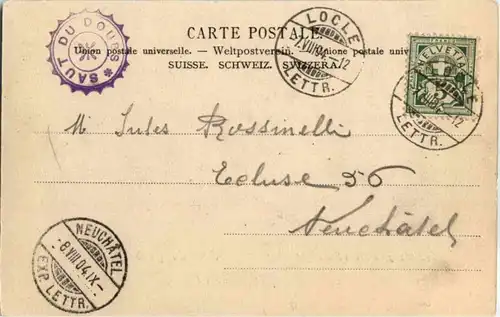 CARTE POSTALE.
Union postale universelle. — Weltpostverein. — Unione postale universale
SUISSE. SCHWEIZ. SVIZZERA.
* SAUT DU DOUBS *
LOCLE
LETTR.
HELVETIA
LETTR.
M Jules Rossinelli
Ecluse 56
Neuchâtel
NEUCHÂTEL
-8.VIII.04.IX-
EXP. LETTR.